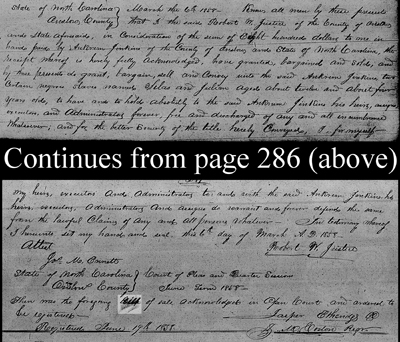 State of North Carolina March the 6th 1858. Know all men by these presents
Onslow County that I the said Robert W. Justice of the County of Onslow
and State aforesaid, in Consideration of the sum of Eight hundred dollars to me in
hand paid by Andrew Jenkins of the County of Onslow and State of North Carolina, the
receipt whereof is hereby fully Acknowledged, have granted bargained and Sold, and
by these presents do grant, bargain, sell and Convey unto the said Andrew Jenkins two
Certain negroe slaves named Silas and aged about twelve and about
years old, to have and to hold absolutely to the said Andrew Jenkins his heirs,
executors, and Administrators forever, free and discharged of any and all incumbrance
Whatsoever, and for the better Security of the title hereby Conveyed, I, for myself
Continues from page 286 (above)
my heirs, executors And Administrators to and with the said Andrew Jenkins his
heirs, executors, Administrators And assigns do warrant and forever defend the same
from the lawful Claims of Any and all persons Whatever. In testimony whereof
I hereunto set my hand and seal this 6th day of March A.D. 1858.
Attest Robert W. Justice
M.
State of North Carolina Court of Pleas and Quarter Sessions
Onslow County June Term 1858
Then was the forgoing Bill of sale Acknowledged in Open Court and ordered to
be registered. Jasper
Registered June 19th 1858.